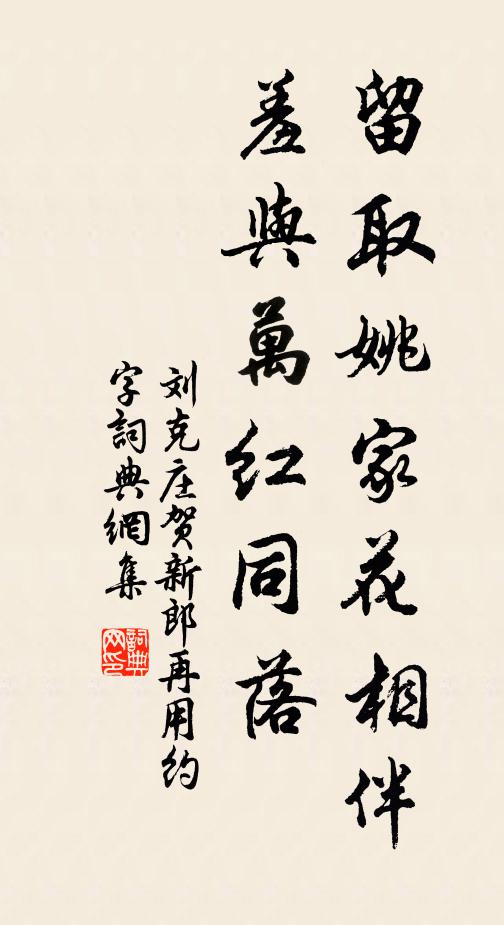 留取姚家花相伴
羞與萬紅同落
刘克庄贺新郎再用约
字詞典網集
詞典网印